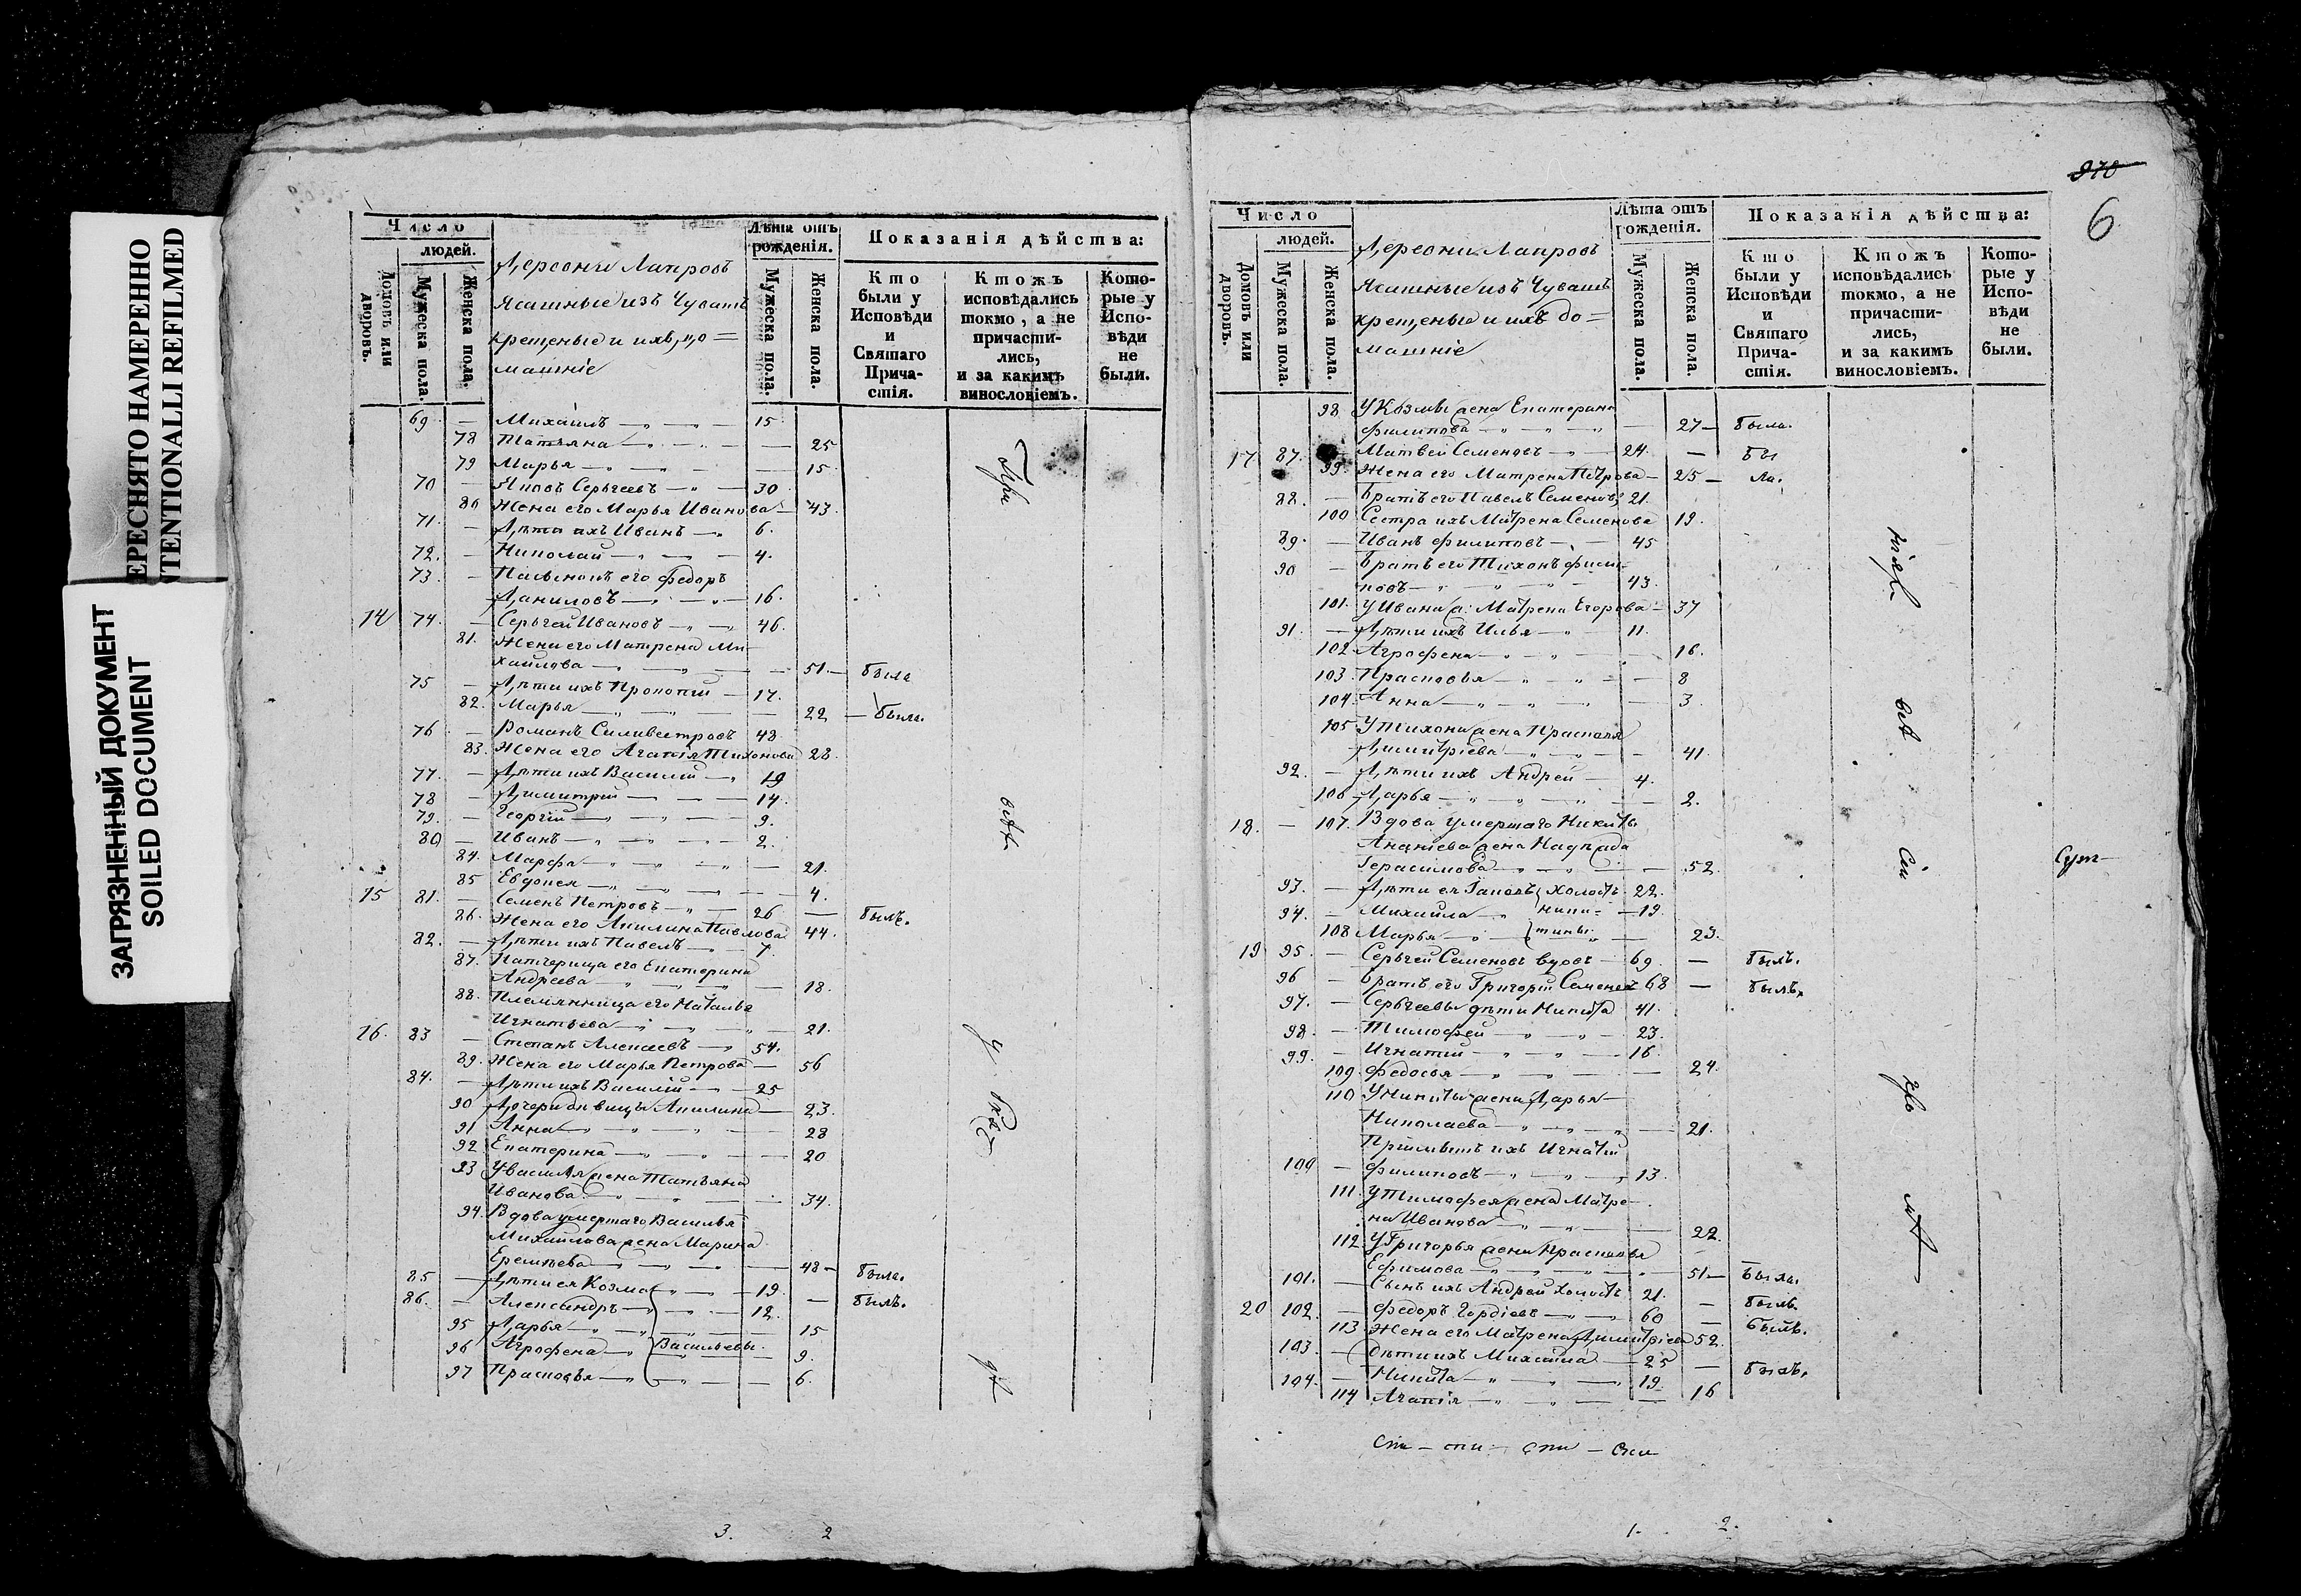 ПЕРЕСНЯТО НАМЕРЕННО
INTENTIONALLI REFILMED
ЗАГРЯЗНЕННЫЙ ДОКУМЕНТ
SOILED DOCUMENT
Число
людей.
Домовъ или дворовъ.
Мужеска пола.
Женска пола.
Деревни Лапровъ
Ясашные изъ Чувашъ
крещеные и ихъ до=
машніе
Лѣта отъ рожденія.
Мужеска пола.
Женска пола.
Показанія дѣйства:
Кто были у Исповѣди и Святаго Причастія.
Ктожъ исповѣдались токмо, а не причастились, и за какимъ винословіемъ.
Которые у Исповѣди не были.
69 — Михаилъ — 15
78 Татьяна — 25
79 Марья — 15
70 — Яковъ Сергѣевъ — 30
80 Жена его Марья Иванова — 43
71. — Дѣти ихъ Иванъ — 6.
72. — Николай — 4.
73. — Пасынокъ его Федоръ
Даниловъ — 16.
14 74. — Сергѣй Ивановъ — 46.
81. Жена его Матрена Ми-
хайлова — 51. — была
75 — Дѣти ихъ Прокопій — 17.
82. Марья — 22 — была.
76 — Романъ Силивестровъ 48.
83. Жена его Агапія Тихонова 28.
77. — Дѣти ихъ Василій — 19
78 — Димитрій — 14.
79. — Георгій — 9.
80 — Иванъ — 2.
84. Марфа — 21.
85 Евдокея — 4.
15 81. — Семенъ Петровъ — 26 — былъ.
86. Жена его Акилина Павлова 44.
82. — Дѣти ихъ Павелъ — 7.
87. Патчерица его Екатерина
Андреева — 18.
88. Племянница его Наталья
Игнатьева — 21.
16. 83 — Степанъ Алексѣевъ — 54.
89. Жена его Марья Петрова — 56
84. — Дѣти ихъ Василій — 25
90 Дочери дѣвицы Акилина — 23.
91 Анна — 28
92 Екатерина — 20
93 У Василья жена Татьяна
Иванова — 34.
94. Вдова умершаго Василья
Михайлова жена Марина
Еремѣева — 48 — была.
85 — Дѣти ея Козма — 19. — былъ.
86. — Александръ — 12.
95 Дарья — 15
96 Агрофена — Васильевы. 9.
97 Прасковья — 6.
3. 2
970
6
Число
людей.
Домовъ или дворовъ.
Мужеска пола.
Женска пола.
Деревни Лапровъ
Ясашные изъ Чувашъ
крещеные и ихъ до=
машніе
Лѣта отъ рожденія.
Мужеска пола.
Женска пола.
Показанія дѣйства:
Кто были у Исповѣди и Святаго Причастія.
Ктожъ исповѣдались токмо, а не причастились, и за какимъ винословіемъ.
Которые у Исповѣди не были.
98 У Козмы жена Екатерина
Филипова — 27 — была.
17 87. — Матвей Семеновъ — 24. — бы
99. Жена его Матрена Петрова — 25 — ла.
88. — Братъ его Павелъ Семеновъ 21.
100 Сестра ихъ Матрена Семенова 19.
89. — Иванъ Филиповъ — 45
90 — Братъ его Тихонъ Фили-
повъ — 43.
101. У Ивана ж. Матрена Егорова — 37
91. — Дѣти ихъ Илья — 11.
102 Агрофена — 16.
103. Прасковья — 8
104. Анна — 3.
105 У Тихона жена Прасковья
Димитріева — 41.
92. — Дѣти ихъ Андрей — 4.
106 Дарья — 2.
18. — 107. Вдова умершаго Никиты
Ананіева жена Надежда
Герасимова — 52.
93. — Дѣти ея Іаковъ холостъ 22.
94. — Михайла — Ники- 19.
108 Марья — тины — 23.
19 95. — Сергѣй Семеновъ вдовъ — 69. — былъ.
96 — Братъ его Григорій Семеновъ 68 — былъ.
97. — Сергѣевы дѣти Никита 41.
98. — Тимофей — 23.
99. — Игнатій — 16.
109. Федосья — 24.
110 У Никиты жена Дарья —
Николаева — 21.
Пріимышъ ихъ Игнатій
100 — Филиповъ — 13.
111. У Тимофея жена Матре-
на Иванова — 22.
112. У Григорья жена Прасковья
Ефимова — 51 — была.
101. — Сынъ ихъ Андрей холостъ 21. — былъ.
20 102. — Федоръ Гордіевъ — 60 — былъ.
113 Жена его Матрена Димитріева 52.
103. — Дѣти ихъ Михайла — 25 — былъ.
104. — Никита — 19.
114 Агапія — 16
1. 2.